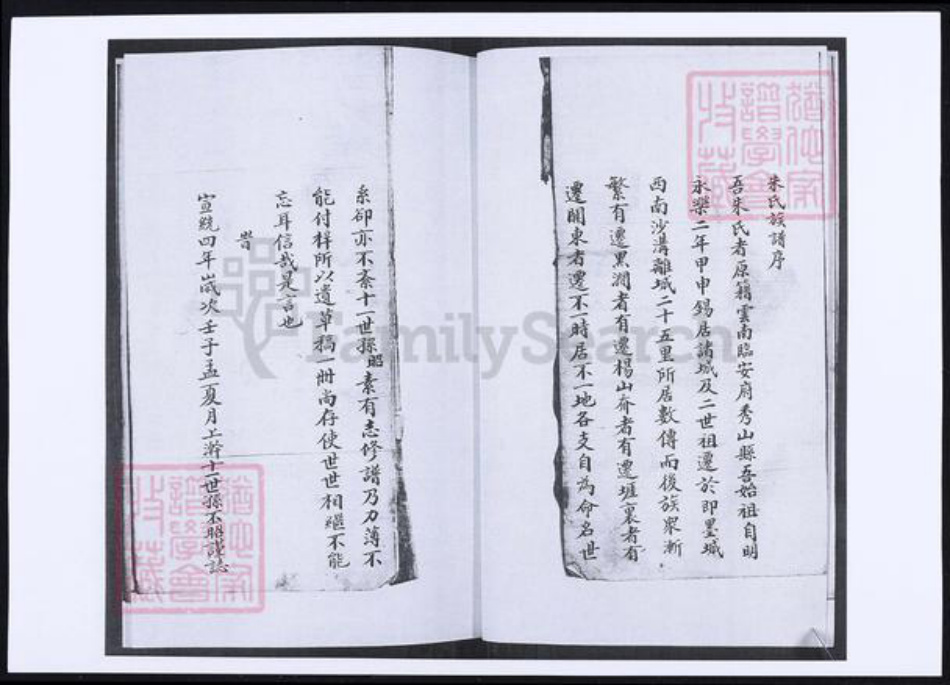 朱氏族譜序
吾朱氏者原籍雲南臨安府秀山縣吾始祖自明
永樂二年甲申錫居諸城及二世祖遷於即墨城
西南沙溝離城二十五里所居數傳而後族衆漸
繁有遷黑澗者有遷楊山夼者有遷堐裏者有
遷關東者遷不一時居不一地各支自為命名世
系卻亦不紊十一世孫昭素有志修譜乃力薄不
能付梓所以遺草稿一冊尚存使世世相繼不能
忘耳信哉是言也
時
宣統四年歲次壬子孟夏月上澣十一世孫丕昭謹誌
譜學會
收藏
譜學會
收藏
FamilySearch